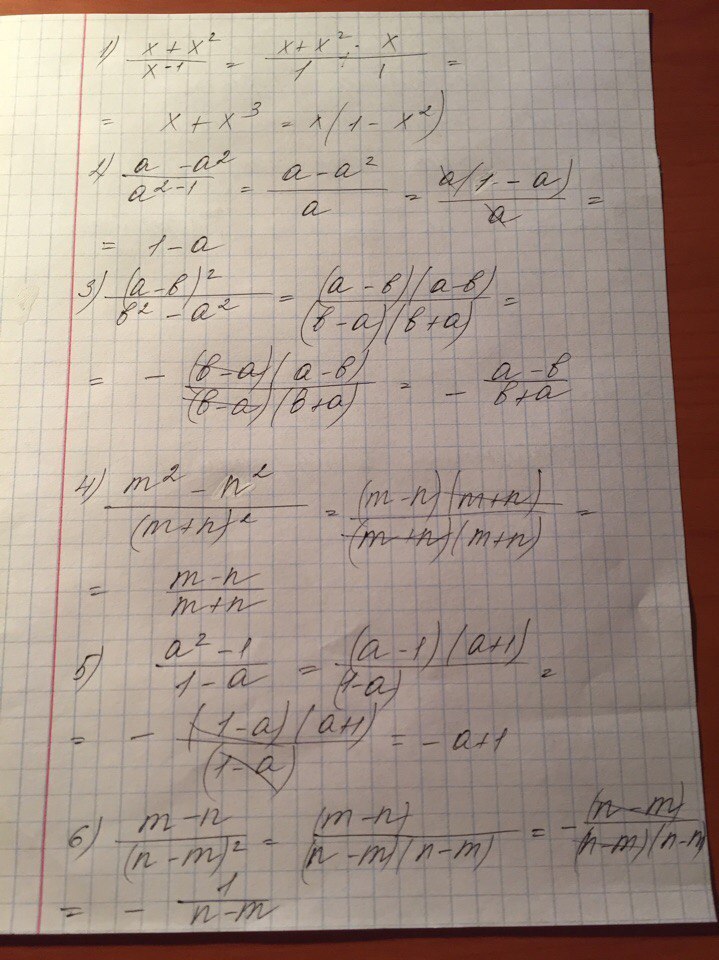 1) (x + x²)/(x - 1) = (x + x² · x)/(1 ÷ 1) =
= x + x³ = x(1 - x²)
2) (a - a²)/(a² - 1) = (a - a²)/a = a(1 - a)/a =
= 1 - a
3) (a - в)²/(в² - a²) = (a - в)(a - в)/(в - a)(в + a) =
= - (в - a)(a - в)/(в - a)(в + a) = - (a - в)/(в + a)
4) (m² - n²)/(m + n)² = (m - n)(m + n)/(m + n)(m + n) =
= (m - n)/(m + n)
5) (a² - 1)/(1 - a) = (a - 1)(a + 1)/(1 - a) =
= - (1 - a)(a + 1)/(1 - a) = - a + 1
6) (m - n)/(n - m)² = (m - n)/(n - m)(n - m) = - (n - m)/(n - m)(n - m)
= - 1/(n - m)